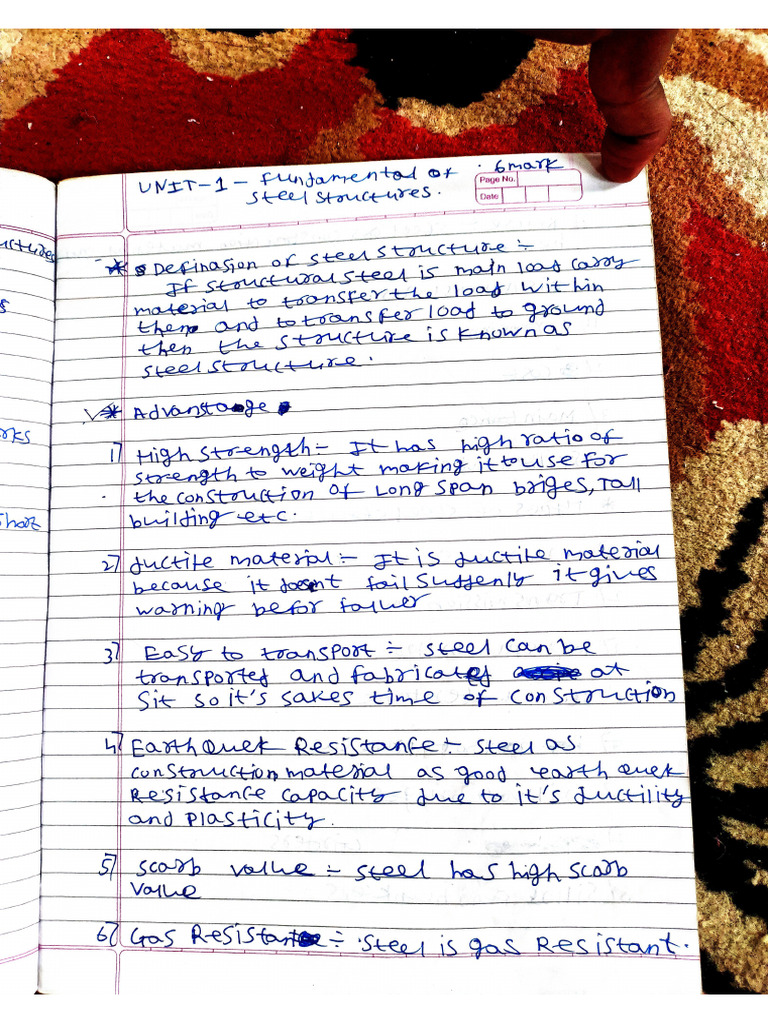 UNIT-1 - fundamental of · 6 mark
steel structures.
Page No.
Date
* Definasion of steel structure :-
If structural steel is main load carry
material to transfer the load within
them and to transfer load to ground
then the structure is known as
steel structure.
* Advantage
1) High strength :- It has high ratio of
strength to weight making it to use for
the construction of Long span briges, Tall
building etc.
2) ductile material :- It is ductile material
because it doesnt fail suddenly it gives
warning befor failuer
3) Easy to transport :- steel can be
transported and fabricated at
Sit so it's sakes time of construction
4) Earth Quek Resistance :- steel as
construction material as good earth quek
Resistance capacity due to it's ductility
and plasticity.
5) scarb value :- steel has high scarb
value
6) Gas Resistance :- steel is gas Resistant.
uctures
s
rks
short